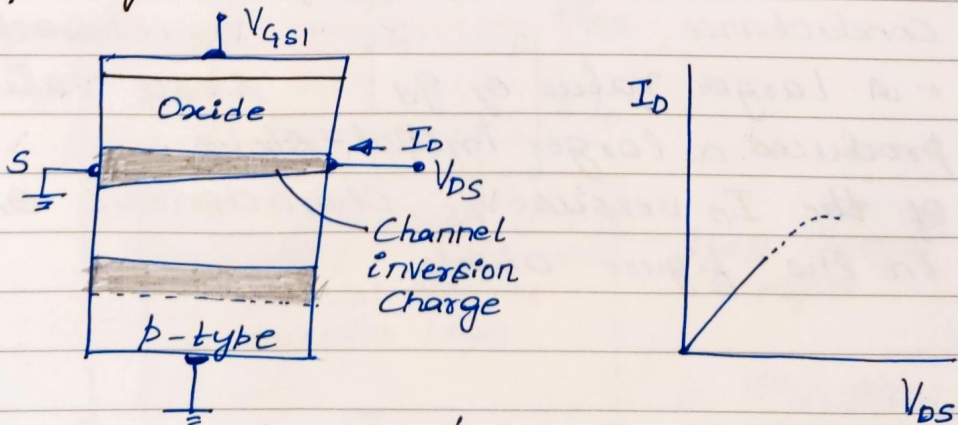 V_GS1
Oxide
I_D
S
V_DS
Channel
inversion
Charge
p-type
I_D
V_DS